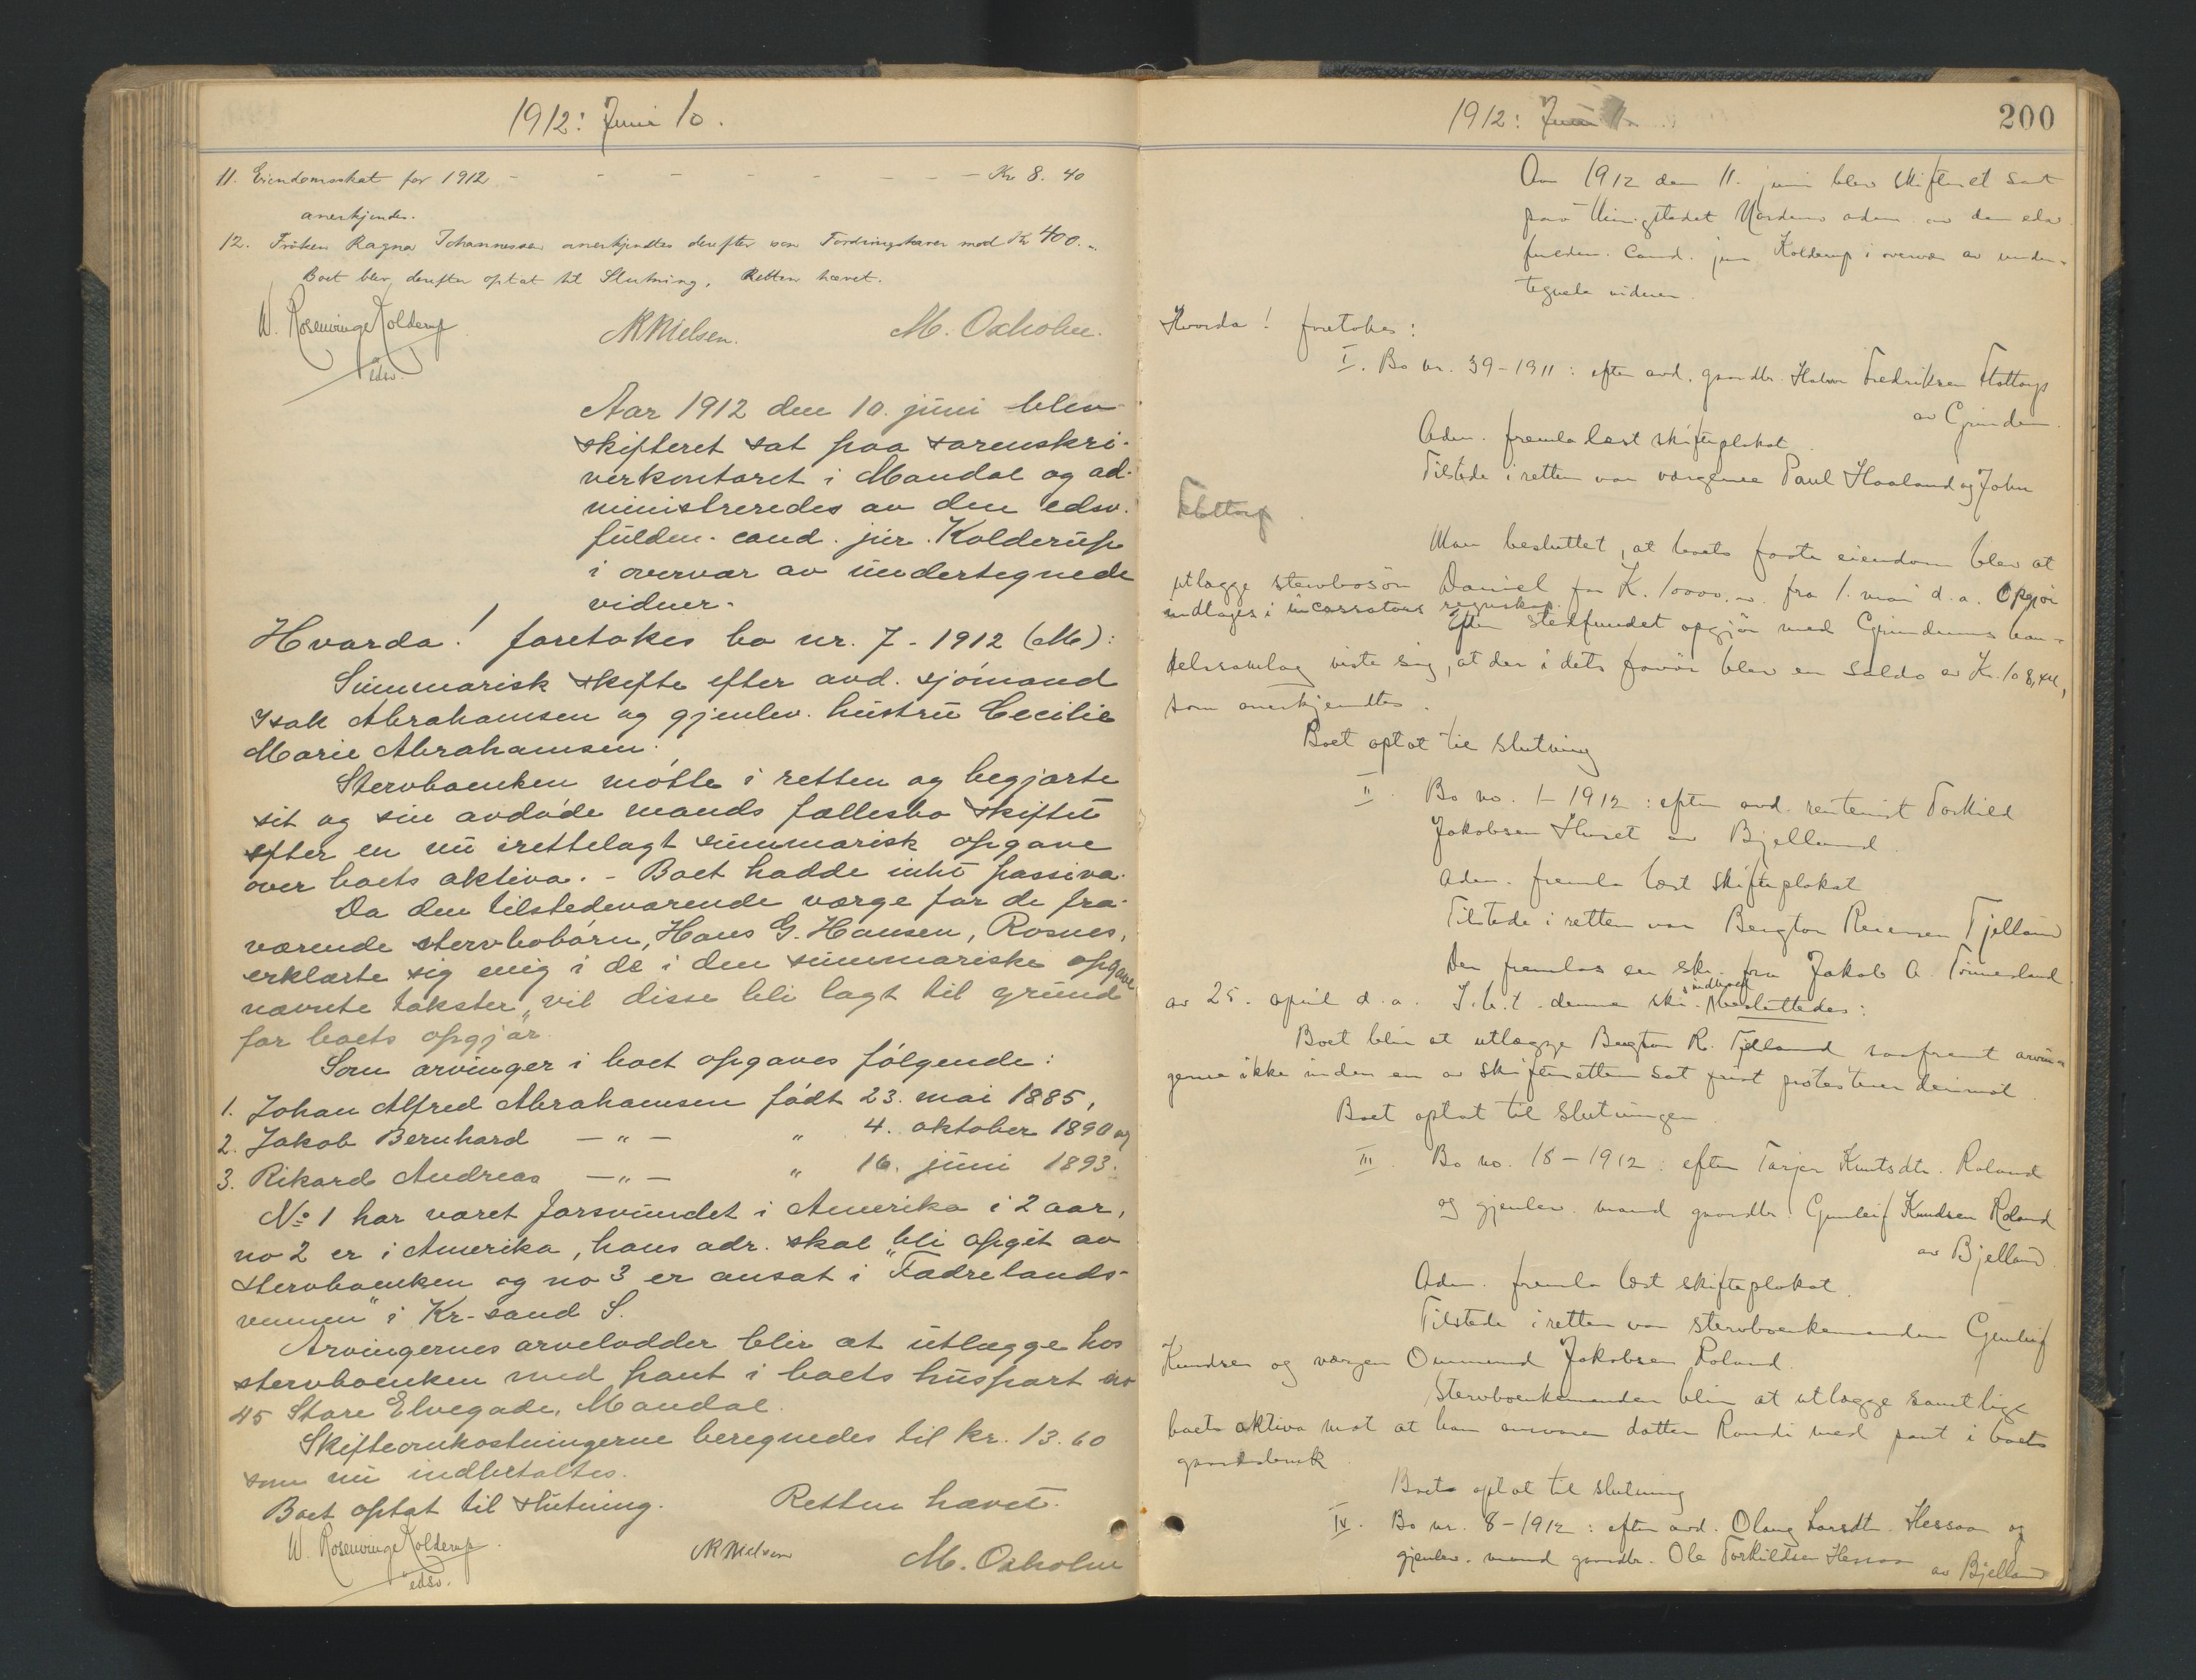 1912: Juni 10.
11. Eiendomsskat for 1912 - - - - - - - - Kr 8. 40
anerkjendes.
12. Frøken Ragna Johannessen anerkjendtes derefter som Fordringshaver med Kr 400.-
Boet blev derefter optat til Slutning. Retten hævet.
W. Rosenvinge Kolderup
edsv.
NKNielsen.
M. Oxholm.
Aar 1912 den 10. juni blev
skifteret sat paa sorenskri-
verkontoret i Mandal og ad-
ministreredes av den edsv.
fuldm. cand. jur. Kolderup
i overvær av undertegnede
vidner.
Hvorda! foretokes bo nr. 7 - 1912 (M):
Summarisk skifte efter avd. sjømand
Isak Abrahamsen og gjenlev. hustru Cecilie
Marie Abrahamsen.
Stervboenken møtte i retten og begjærte
sit og sin avdøde mands fællesbo skiftet
efter en nu irettelagt summarisk opgave
over boets aktiva. - Boet hadde intet passiva.
Da den tilstedeværende værge for de fra-
værende stervbobørn, Hans G. Hansen, Rosnes,
erklærte sig enig i de i den summariske opgave
nævnte takster, vil disse bli lagt til grund
for boets opgjør.
Som arvinger i boet opgaves følgende:
1. Johan Alfred Abrahamsen født 23. mai 1885,
2. Jakob Bernhard - " - " 4. oktober 1890 og
3. Rikard Andreas - " - " 16. juni 1893.
No 1 har været forsvundet i Amerika i 2 aar,
no 2 er i Amerika, hans adr. skal bli opgit av
stervboenken og no 3 er ansat i "Fædrelands-
vennen" i Kr-sand S.
Arvingernes arvelodder blir at utlægge hos
stervboenken med pant i boets huspart no
45 Store Elvegade, Mandal.
Skifteomkostningerne beregnedes til kr. 13.60
som nu indbetaltes.
Boet optat til slutning. Retten hævet.
W. Rosenvinge Kolderup.
edsv.
NKNielsen
M. Oxholm
1912: Juni 11.
200
Aar 1912 den 11. juni blev skifteret sat
paa tingstedet adm. av den edsv.
fuldm. cand. jur Kolderup i overvær av under-
tegnede vidner.
Hvorda! foretokes:
I. Bo nr. 39-1911: efter avd. gaardbr. Halvor Fredriksen Flottorp
av Grindem.
Adm. fremla læst skifteplakat
Tilstede i retten var værgerne Paul Haaland og John
Flottorp.
Man besluttet, at boets faste eiendom blev at
utlægge stervbosøn Daniel for K. 10000.- fra 1. mai d.a. Opgjør
indtages i incassators regnskap. Efter stedfundet opgjør med Grindems han-
delssamlag viste sig, at der i dets favør blev en saldo av K. 108,
som anerkjendtes.
Boet optat til slutning
II. Bo no. 1-1912: efter avd. rentenist Torkild
Jakobsen Huset av Bjelland.
Adm. fremla læst skifteplakat
Tilstede i retten var Bengtor Reiersen Tjelland
Der fremlas en skr. fra Jakob A.
av 25. april d.a. I.h.t. denne skr.s indhold besluttedes:
Boet blir at utlægge Bengtor R. Tjelland saafremt arvin-
gerne ikke inden en av skifteretten sat frist protesterer derimot.
Boet optat til slutningen
III. Bo no. 18-1912: efter Tarjer Knutsdtr. Roland
og gjenlev. mand gaardbr. Gunleif Knudsen Roland
av Bjelland.
Adm. fremla læst skifteplakat.
Tilstede i retten var stervboenkemanden Gunleif
Knudsen og værgen Ommund Jakobsen Roland.
Stervboenkemanden blir at utlægge samtlige
boets aktiva mot at han ansvarer datter Randi med pant i boets
gaardsbruk.
Boet optat til slutning
IV. Bo nr. 8-1912: efter avd. Olaug Larsdtr. Hessaa og
gjenlev. mand gaardbr. Ole Torkildsen Hessaa av Bjelland